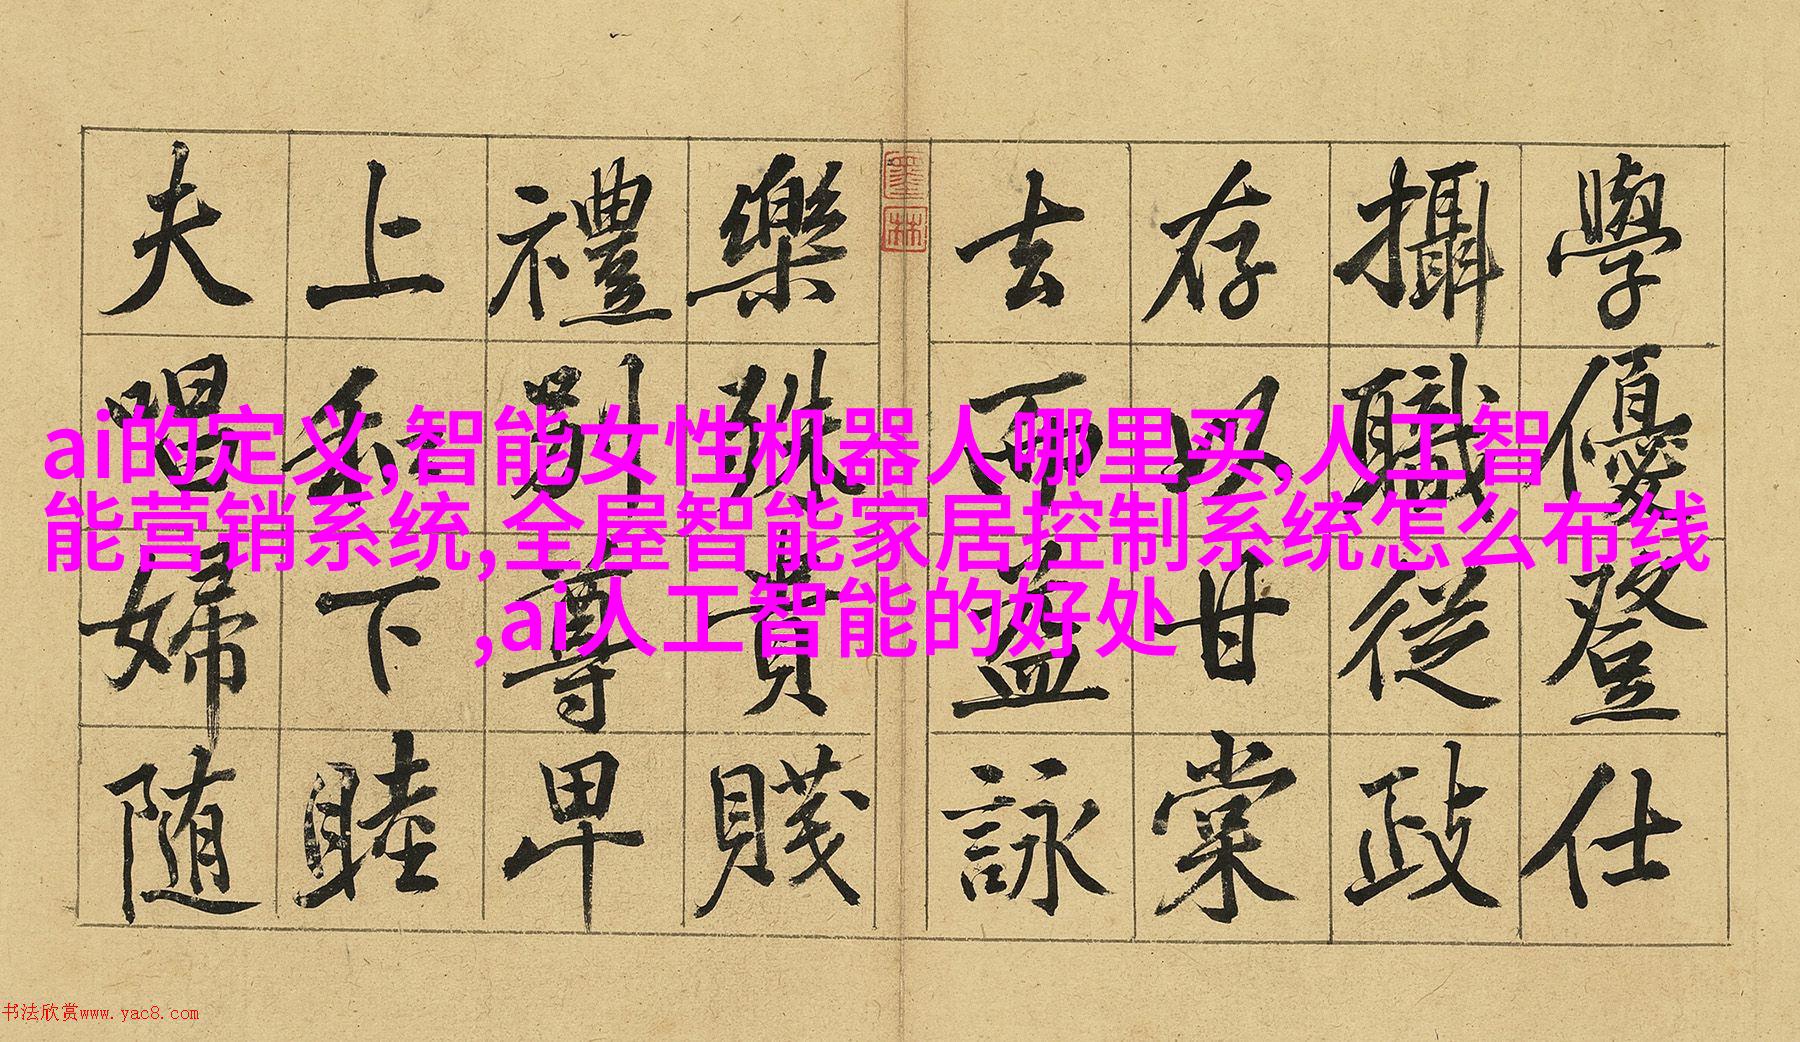 學優登仕
攝職從政
存以甘棠
去而益詠
墨林
樂殊貴賤
禮別尊卑
上和下睦
夫唱婦随
ai的定义,智能女性机器人哪里买,人工智
能营销系统,全屋智能家居控制系统怎么布线
,ai人工智能的好处
书法欣赏www.yac8.com